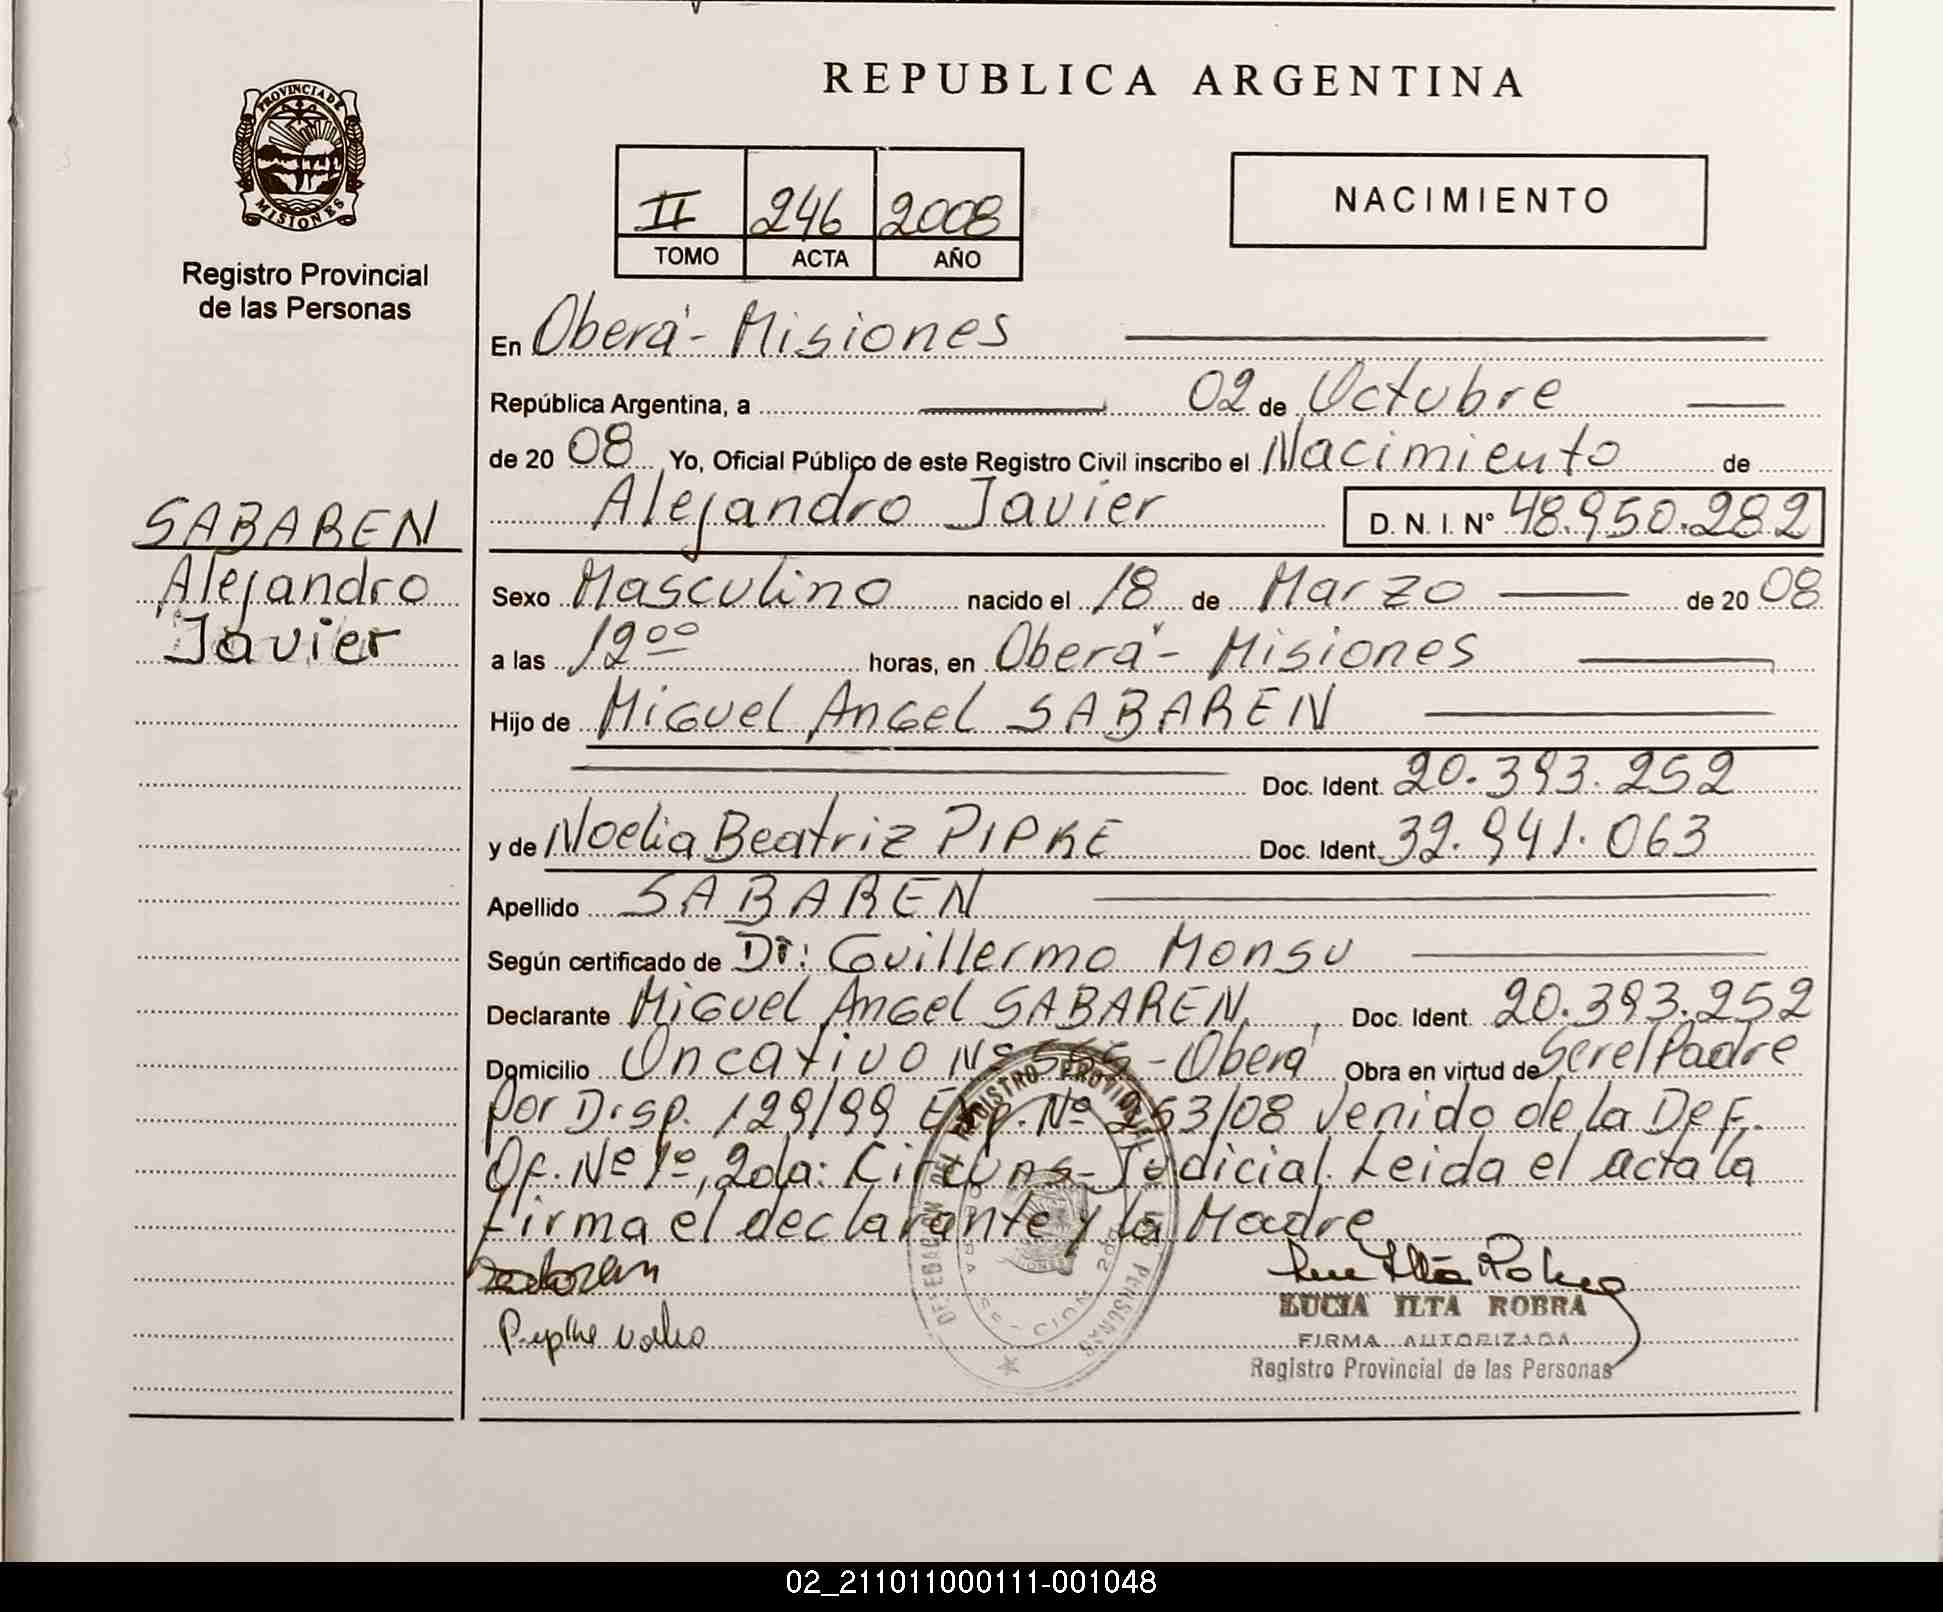 PROVINCIA DE
MISIONES
Registro Provincial
de las Personas
SABAREN
Alejandro
Javier
REPUBLICA ARGENTINA
II 246 2008
TOMO ACTA AÑO
NACIMIENTO
En Oberá - Misiones
República Argentina, a 02 de Octubre
de 20 08 Yo, Oficial Público de este Registro Civil inscribo el Nacimiento de
Alejandro Javier D. N. I. Nº 48.950.282
Sexo Masculino nacido el 18 de Marzo de 20 08
a las 12ºº horas, en Oberá - Misiones
Hijo de Miguel Angel SABAREN
Doc. Ident. 20.393.252
y de Noelia Beatriz PIPKE Doc. Ident. 32.941.063
Apellido SABAREN
Según certificado de Dr: Guillermo Monsu
Declarante Miguel Angel SABAREN, Doc. Ident. 20.393.252
Domicilio Oncativo Nº 555 - Oberá Obra en virtud de Ser el Padre
por Disp. 129/99 Exp. Nº 253/08 Venido de la Def.
Of. Nº 1º, 2da: Circuns- Judicial. Leida el acta la
firma el declarante y la Madre
LUCIA ILTA ROBRA
FIRMA AUTORIZADA
Registro Provincial de las Personas
02_211011000111-001048